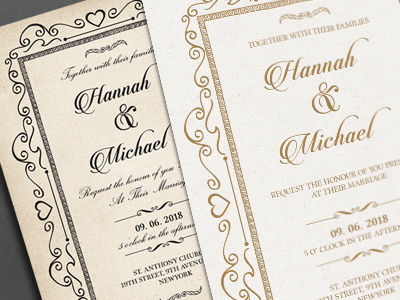 Together with their families
Hannah
&
Michael
Request the honour of you
At Their Marriage
09. 06. 2018
5 o'clock in the afternoon
ST. ANTHONY CHURCH
19TH STREET, 9TH AVENUE
NEWYORK
TOGETHER WITH THEIR FAMILIES
Hannah
&
Michael
REQUEST THE HONOUR OF YOU PRES
AT THEIR MARRIAGE
09. 06. 2018
5 O' CLOCK IN THE AFTERNOON
ST. ANTHONY CHURCH
19TH STREET, 9TH AVENUE
NEWYORK